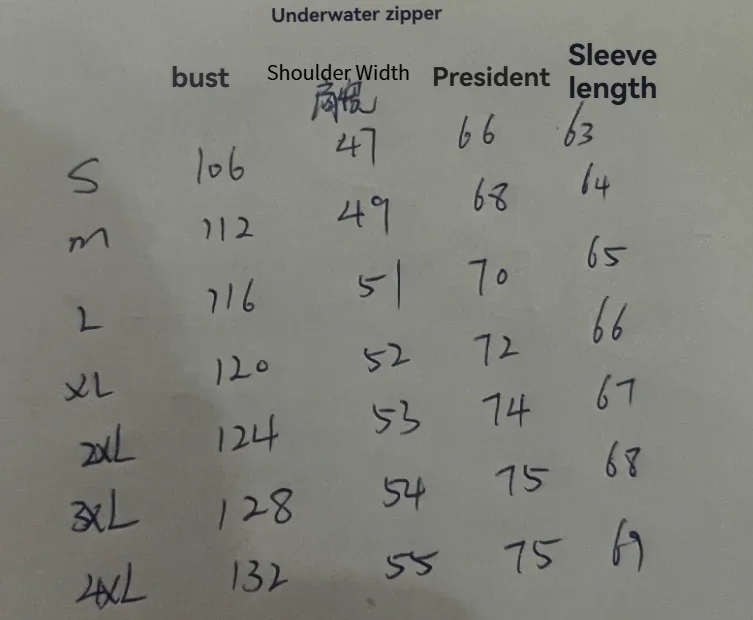 Underwater zipper
bust Shoulder Width President Sleeve length
S 106 47 66 63
M 112 49 68 64
L 116 51 70 65
XL 120 52 72 66
2XL 124 53 74 67
3XL 128 54 75 68
4XL 132 55 75 69